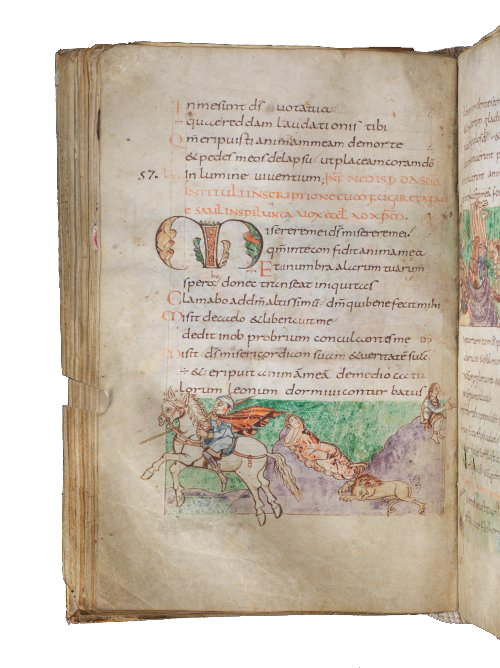 In me sunt ds uota tua
quae reddam laudationis tibi
Qm eripuisti animam meam de morte
& pedes meos de lapsu ut placeam coram dō
57. in lumine uiuentium.
IN TITULI INSCRIPTIONE CUM FUGIRET A FACI
E SAUL IN
Miserere mei ds miserere mei
qm in te confidit anima mea
Et in umbra alarum tuarum
bo
spera donec transeat iniquitas
Clamabo ad dm altissimū dm qui bene fecit mihi
Misit de caelo & liberauit me
dedit in obprobrium conculcantes me
Misit ds misericordiam suam & ueritatē suā
& eripuit animā meā de medio catu
lorum leonum dormiui conturbatus